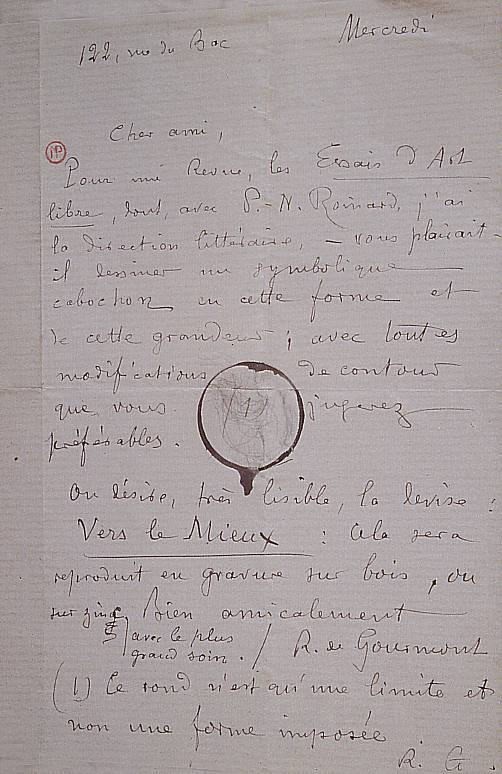 122, rue du Bac
Mercredi
Cher ami,
Pour une Revue, les Essais d'Art
libre, dont, avec P.-N. Roinard, j'ai
la direction littéraire, – vous plairait-
il dessiner un symbolique
cabochon en cette forme et
de cette grandeur ; avec toutes
modifications de contour
que vous jugerez
préférables.
(1)
On désire, très lisible, la devise :
Vers le Mieux : Cela sera
reproduit en gravure sur bois, ou
sur zinc, Bien amicalement
avec le plus
grand soin. / R. de Gourmont
(1) Ce rond n'est qu'une limite et
non une forme imposée
R. G.